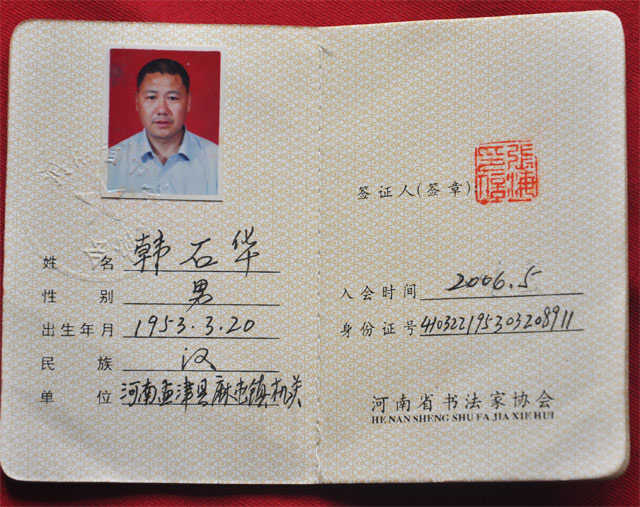 姓名 韩石华
性别 男
出生年月 1953.3.20
民族 汉
单位 河南孟津县麻屯镇机关
签证人(签章)
入会时间 2006.5
身份证号 410322195303208911
河南省书法家协会
HE NAN SHENG SHU FA JIA XIE HUI